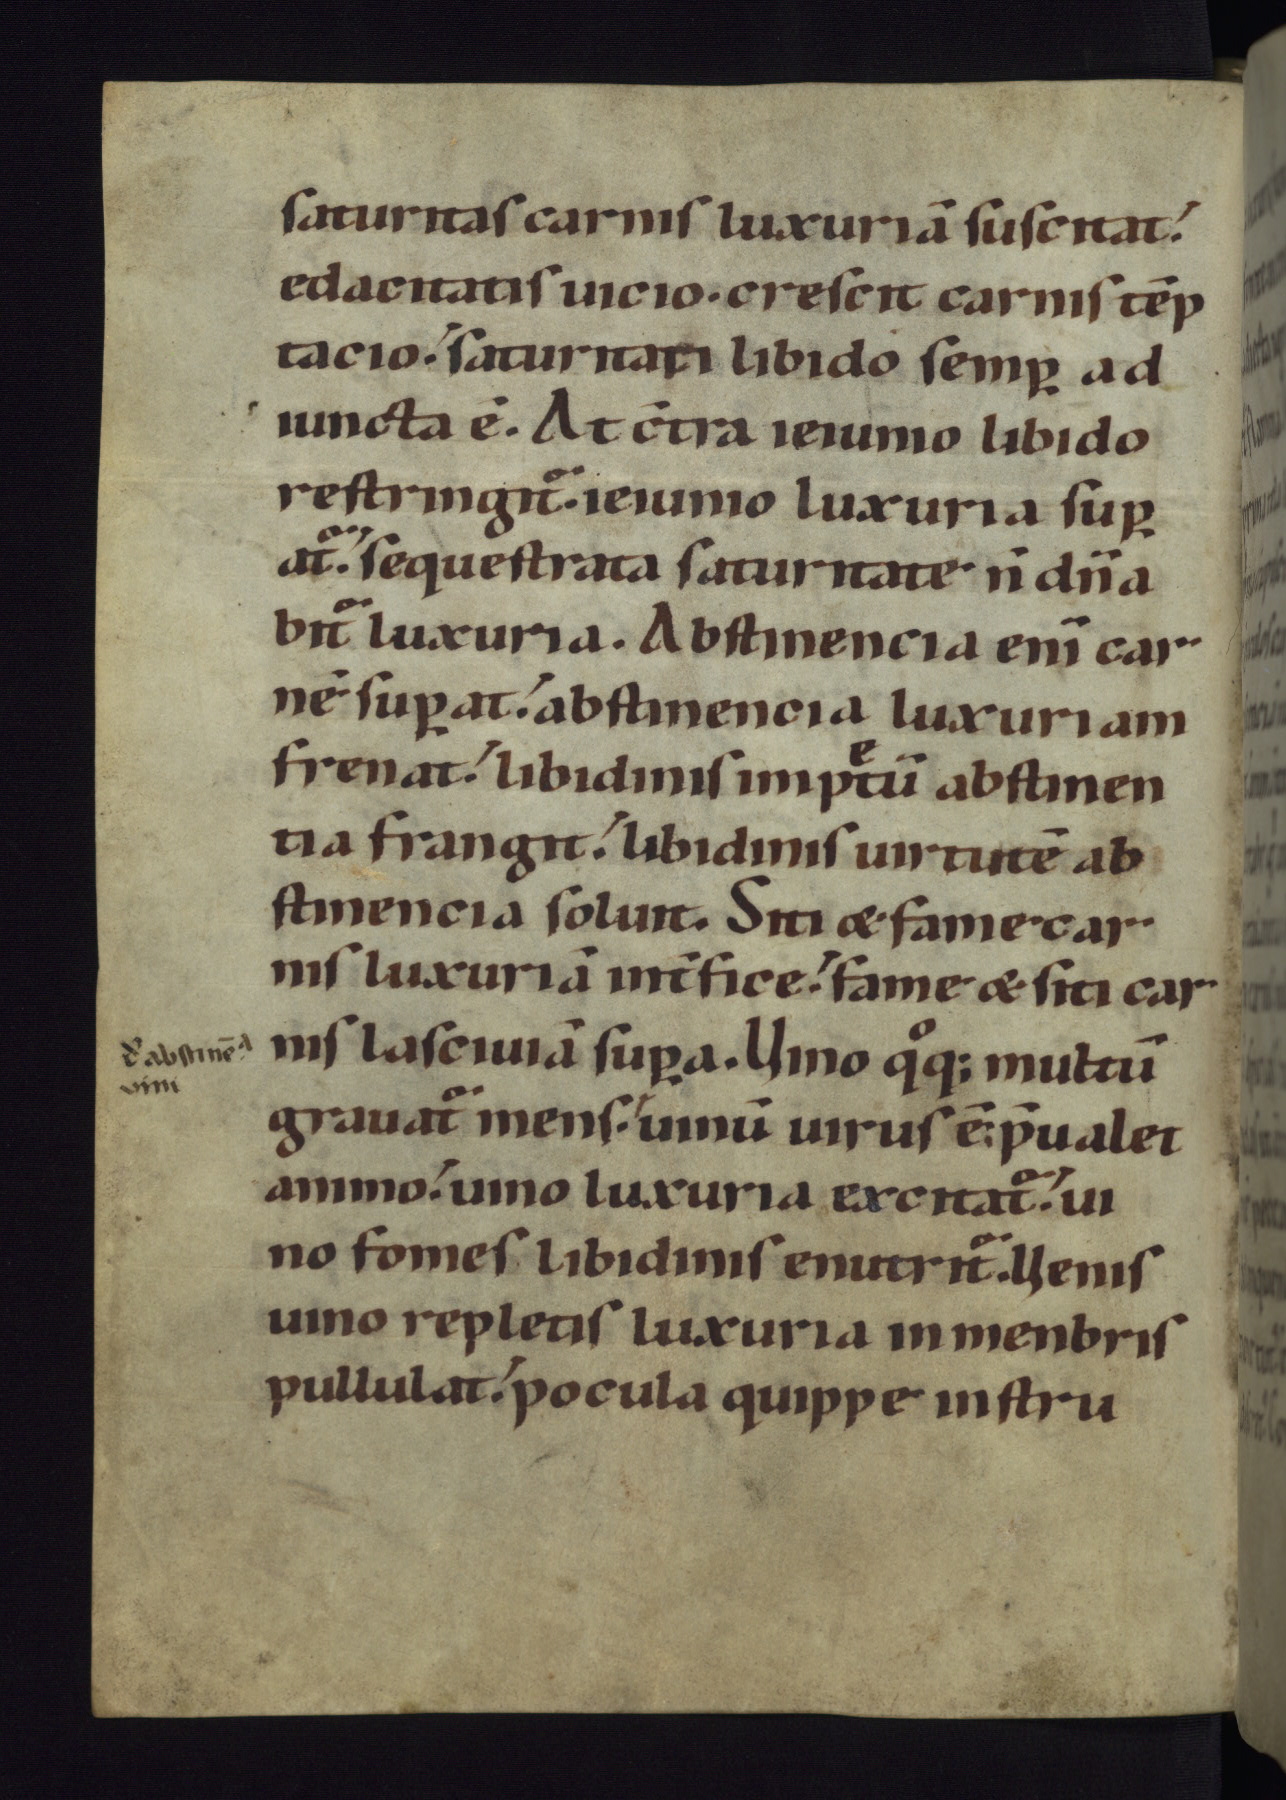 saturitas carnis luxuriā suscitat.
edacitatis uicio. crescit carnis tēp
tacio. saturitati libido semꝑ ad
iuncta ē. At c̄tra ieiunio libido
restringit᷑. ieiunio luxuria suꝑ
at᷑. sequestrata saturitate n̄ dn̄a
bit᷑ luxuria. Abstinencia eni̅ car
nē suꝑat. abstinencia luxuriam
frenat. libidinis impetū abstinen
tia frangit. libidinis uirtutē ab
stinencia soluit. Siti & fame car
nis luxuriā int̄fice. fame & siti car
nis lasciuiā suꝑa. Uino qͦq; multū
grauat᷑ mens. uinū uirus ē; p̄ualet
animo. uino luxuria excitat᷑. ui
no fomes libidinis enutrit᷑. Uenis
uino repletis luxuria in menbris
pullulat. pocula quippe instru
abstinē
vini